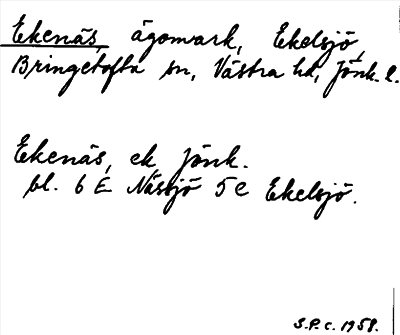 Ekenäs, ägomark, Ekelsjö,
Bringetofta sn, Västra hd, Jönk. l.
Ekenäs, ek Jönk.
bl. 6 E Nässjö 5 e Ekelsjö.
S.P.c. 1958.